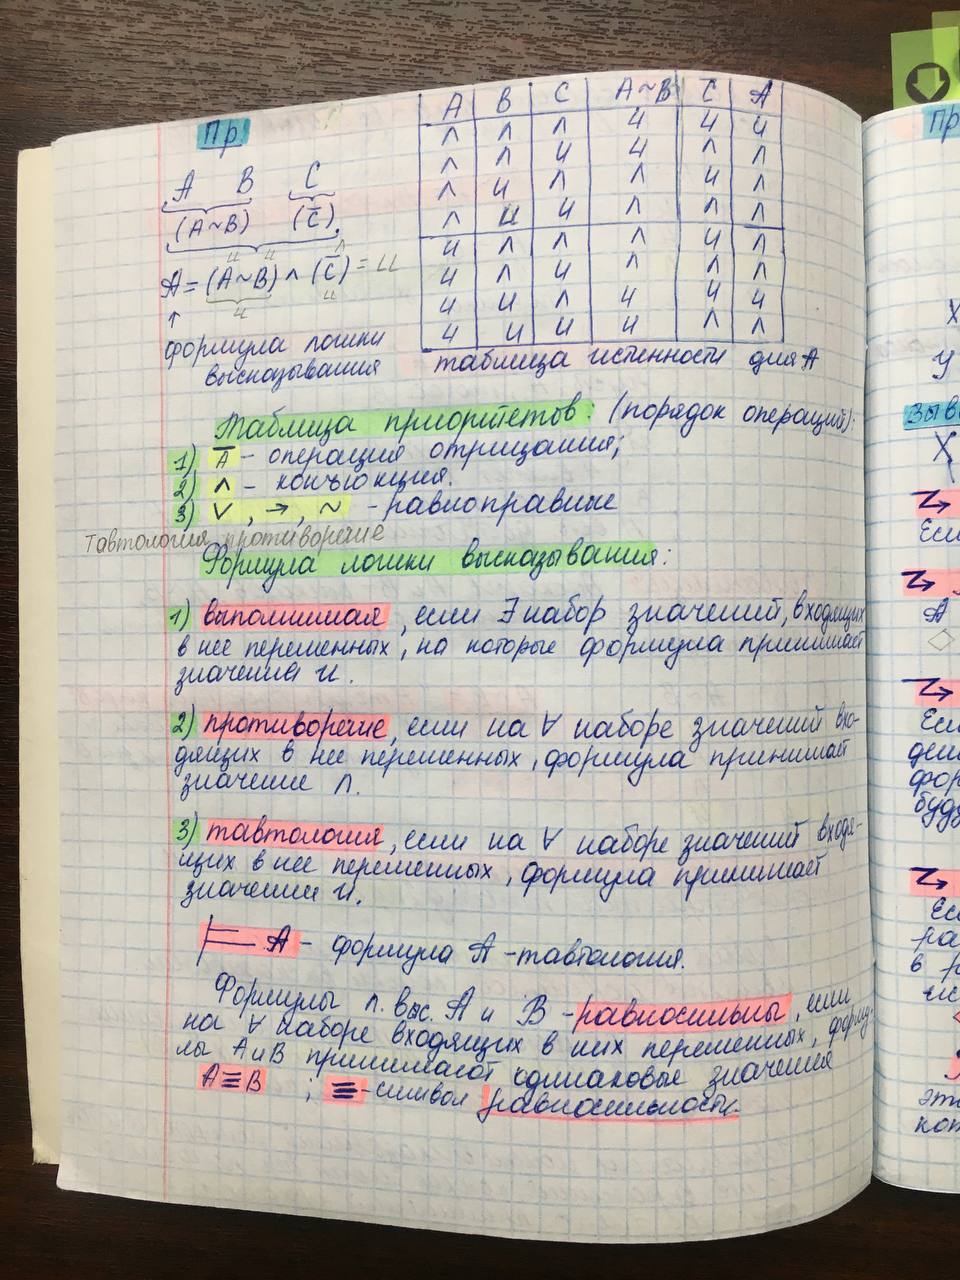 Пр.
A B C
(A~B) (C̄)
и и л
𝔸 = (A~B) ∧ (C̄) = и
и и
↑
формула логики
высказывания
A B C A~B C̄ 𝔸
л л л и и и
л л и и л л
л и л л и л
л и и л л л
и л л л и л
и л и л л л
и и л и и и
и и и и л л
таблица истинности для 𝔸
Таблица приоритетов: (порядок операций):
1) Ā - операция отрицания;
2) ∧ - конъюкция.
3) ∨, →, ~ - равноправные
тавтология противоречие
Формула логики высказывания:
1) выполнимая, если ∃ набор значений, входящих
в нее переменных, на которые формула принимает
значения и.
2) противоречие, если на ∀ наборе значений вхо-
дящих в нее переменных, формула принимает
значение л.
3) тавтология, если на ∀ наборе значений входя-
щих в нее переменных, формула принимает
значении и.
⊨ 𝔸 - формула 𝔸 - тавтология.
Формулы л. выс. A и B - равносильны, если
на ∀ наборе входящих в них переменных, форму-
лы A и B принимают одинаковые значения
A≡B ; ≡ - символ равносильности.
Пр
X
У
Выв
X
Если
𝔸
Если
фор
буд
Есл
ра
в р
ис
это
кот